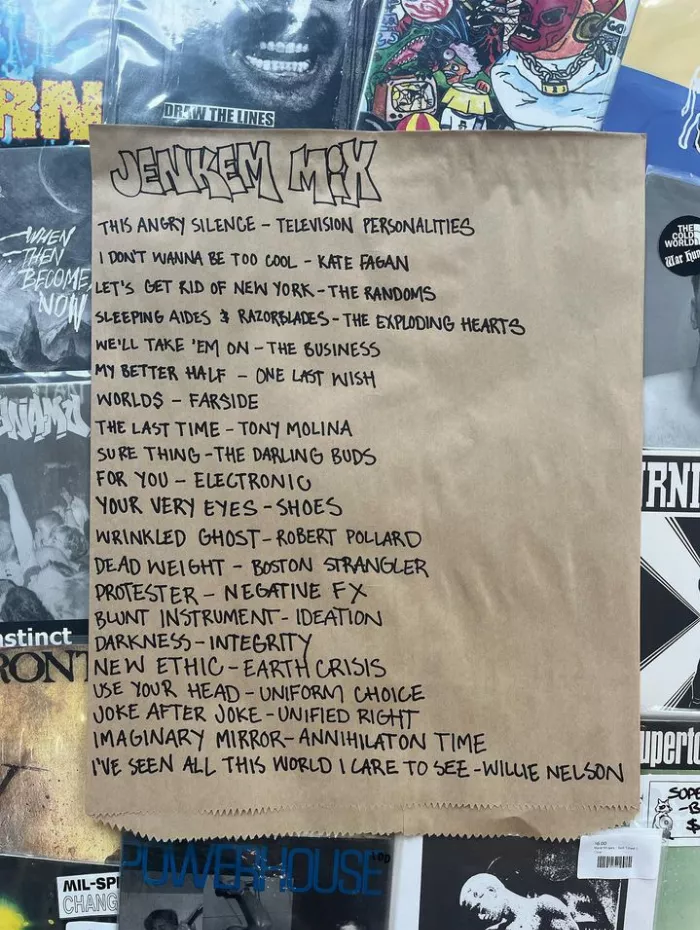 RN
DRAW THE LINES
JENKEM MIX
THIS ANGRY SILENCE - TELEVISION PERSONALITIES
I DON'T WANNA BE TOO COOL - KATE FAGAN
LET'S GET RID OF NEW YORK - THE RANDOMS
SLEEPING AIDES & RAZORBLADES - THE EXPLODING HEARTS
WE'LL TAKE 'EM ON - THE BUSINESS
MY BETTER HALF - ONE LAST WISH
WORLD$ - FARSIDE
THE LAST TIME - TONY MOLINA
SURE THING - THE DARLING BUDS
FOR YOU - ELECTRONIC
YOUR VERY EYES - SHOES
WRINKLED GHOST - ROBERT POLLARD
DEAD WEIGHT - BOSTON STRANGLER
PROTESTER - NEGATIVE FX
BLUNT INSTRUMENT - IDEATION
DARKNESS - INTEGRITY
NEW ETHIC - EARTH CRISIS
USE YOUR HEAD - UNIFORM CHOICE
JOKE AFTER JOKE - UNIFIED RIGHT
IMAGINARY MIRROR - ANNIHILATON TIME
I'VE SEEN ALL THIS WORLD I CARE TO SEE - WILLIE NELSON
WHEN
THEN
BECOME
NOW
THE
COLD
WORLD
War Hun
URNI
nstinct
RONT
uperto
SOPE
-B
$
POWERHOUSE
MIL-SP
CHANG